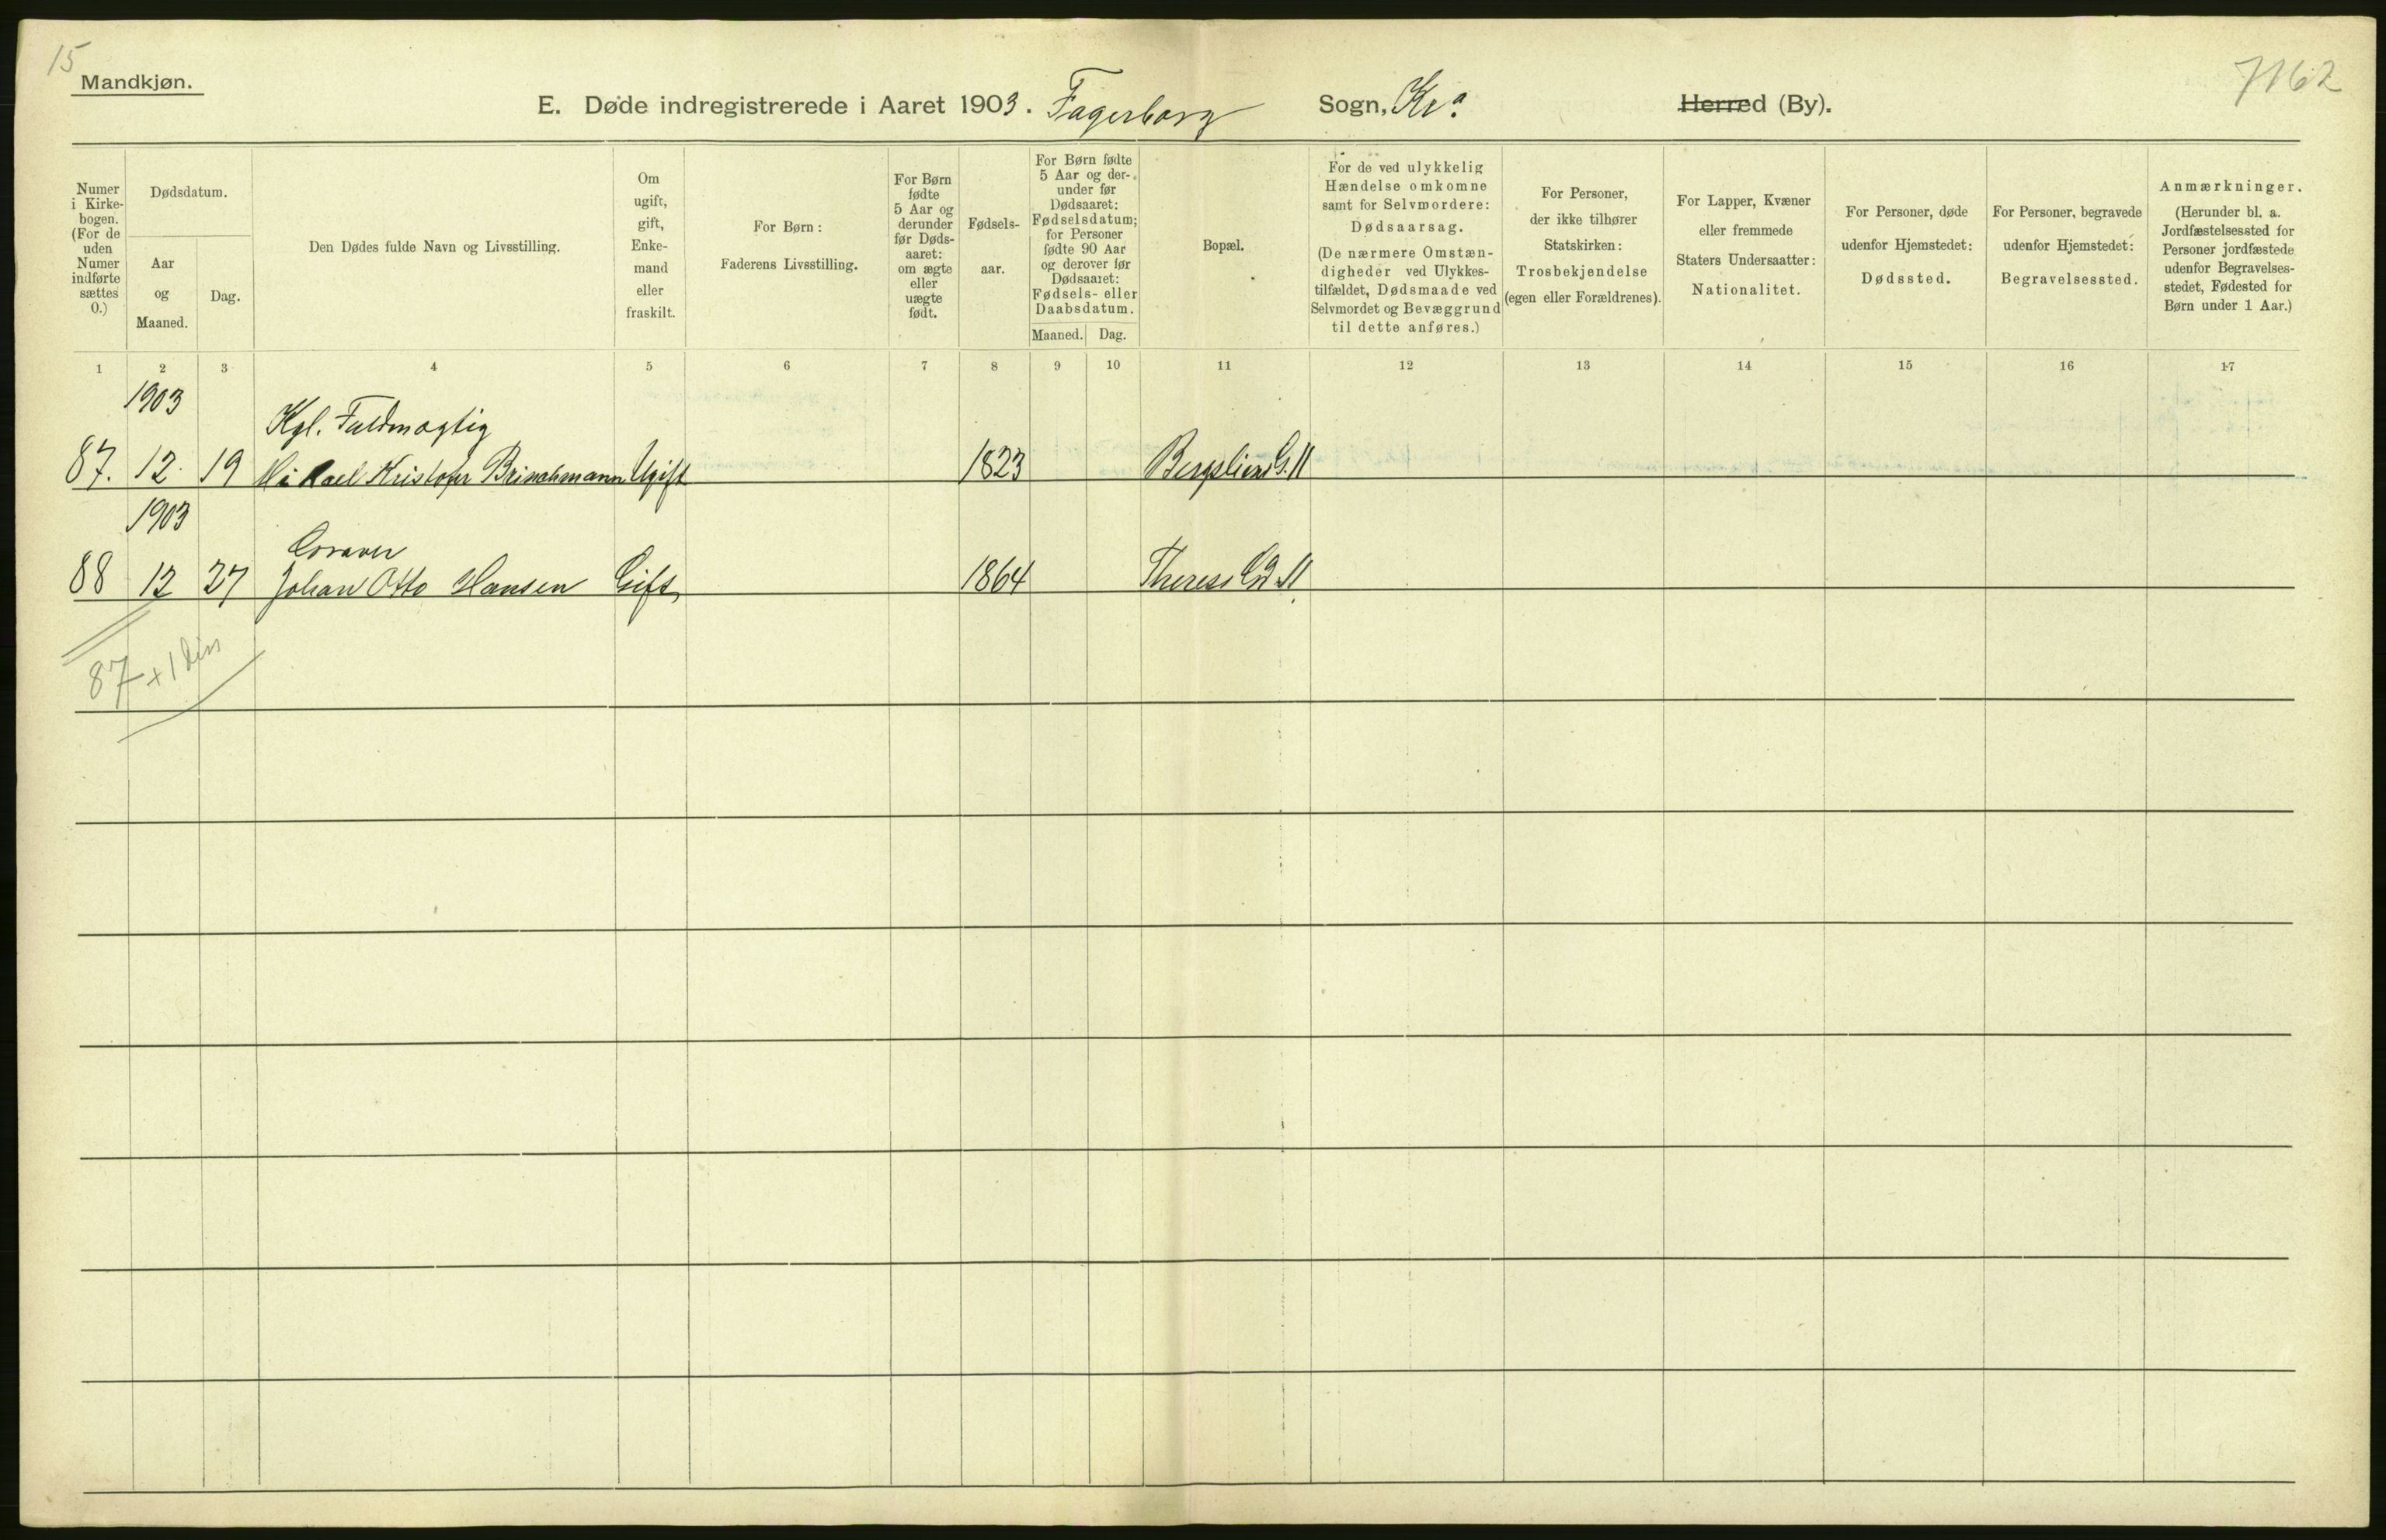 15
Mandkjøn.
7162
E. Døde indregistrerede i Aaret 1903. Fagerborg Sogn, Kra. Herred (By).
Numer i Kirke-bogen. (For de uden Numer indførte sættes 0.)
Dødsdatum.
Aar og Maaned.
Dag.
Den Dødes fulde Navn og Livsstilling.
Om ugift, gift, Enke-mand eller fraskilt.
For Børn: Faderens Livsstilling.
For Børn fødte 5 Aar og derunder før Døds-aaret: om ægte eller uægte født.
Fødsels-aar.
For Børn fødte 5 Aar og der-under før Dødsaaret: Fødselsdatum; for Personer fødte 90 Aar og derover før Dødsaaret: Fødsels- eller Daabsdatum.
Maaned. Dag.
Bopæl.
For de ved ulykkelig Hændelse omkomne samt for Selvmordere: Dødsaarsag. (De nærmere Omstæn-digheder ved Ulykkes-tilfældet, Dødsmaade ved Selvmordet og Bevæggrund til dette anføres.)
For Personer, der ikke tilhører Statskirken: Trosbekjendelse (egen eller Forældrenes).
For Lapper, Kvæner eller fremmede Staters Undersaatter: Nationalitet.
For Personer, døde udenfor Hjemstedet: Dødssted.
For Personer, begravede udenfor Hjemstedet: Begravelsessted.
Anmærkninger. (Herunder bl. a. Jordfæstelsessted for Personer jordfæstede udenfor Begravelses-stedet, Fødested for Børn under 1 Aar.)
1 2 3 4 5 6 7 8 9 10 11 12 13 14 15 16 17
1903
Kgl. Fuldmægtig
87. 12. 19 Mikael Kristofer Brinchmann Ugift 1823 Bergsliens G. 11
1903
Graver
88 12 27 Johan Otto Hansen Gift 1864 Theress Gd. 11
87 + 1 din